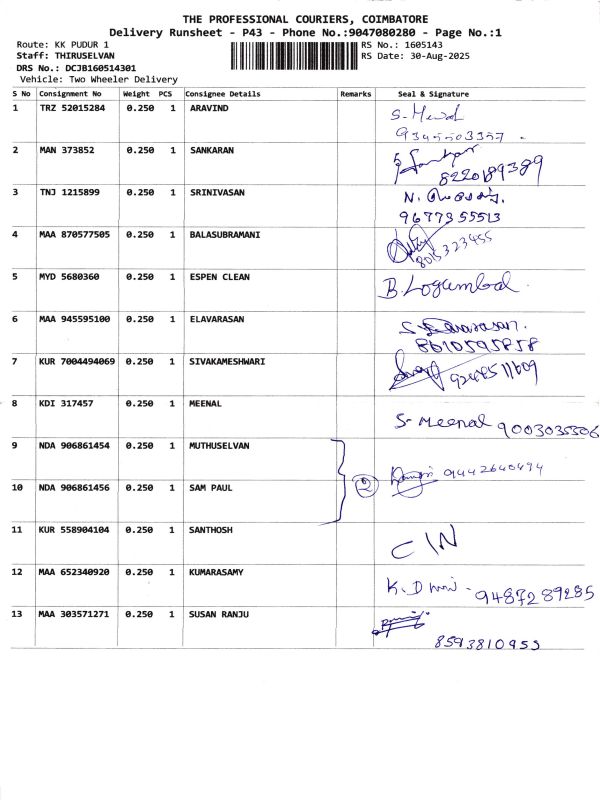 THE PROFESSIONAL COURIERS, COIMBATORE
Delivery Runsheet - P43 - Phone No.:9047080280 - Page No.:1
Route: KK PUDUR 1 RS No.: 1605143
Staff: THIRUSELVAN RS Date: 30-Aug-2025
DRS No.: DCJB160514301
Vehicle: Two Wheeler Delivery
S No Consignment No Weight PCS Consignee Details Remarks Seal & Signature
1 TRZ 52015284 0.250 1 ARAVIND
9345503357
2 MAN 373852 0.250 1 SANKARAN
8220189389
3 TNJ 1215899 0.250 1 SRINIVASAN N.
9677355513
4 MAA 870577505 0.250 1 BALASUBRAMANI
8015323455
5 MYD 5680360 0.250 1 ESPEN CLEAN B. Logambal
6 MAA 945595100 0.250 1 ELAVARASAN S. Elavarasan.
8610595858
7 KUR 7004494069 0.250 1 SIVAKAMESHWARI
8 KDI 317457 0.250 1 MEENAL S- Meenal 9003035306
9 NDA 906861454 0.250 1 MUTHUSELVAN
2 9442640494
10 NDA 906861456 0.250 1 SAM PAUL
11 KUR 558904104 0.250 1 SANTHOSH C IN
12 MAA 652340920 0.250 1 KUMARASAMY K. D - 9487289285
13 MAA 303571271 0.250 1 SUSAN RANJU
8593810955